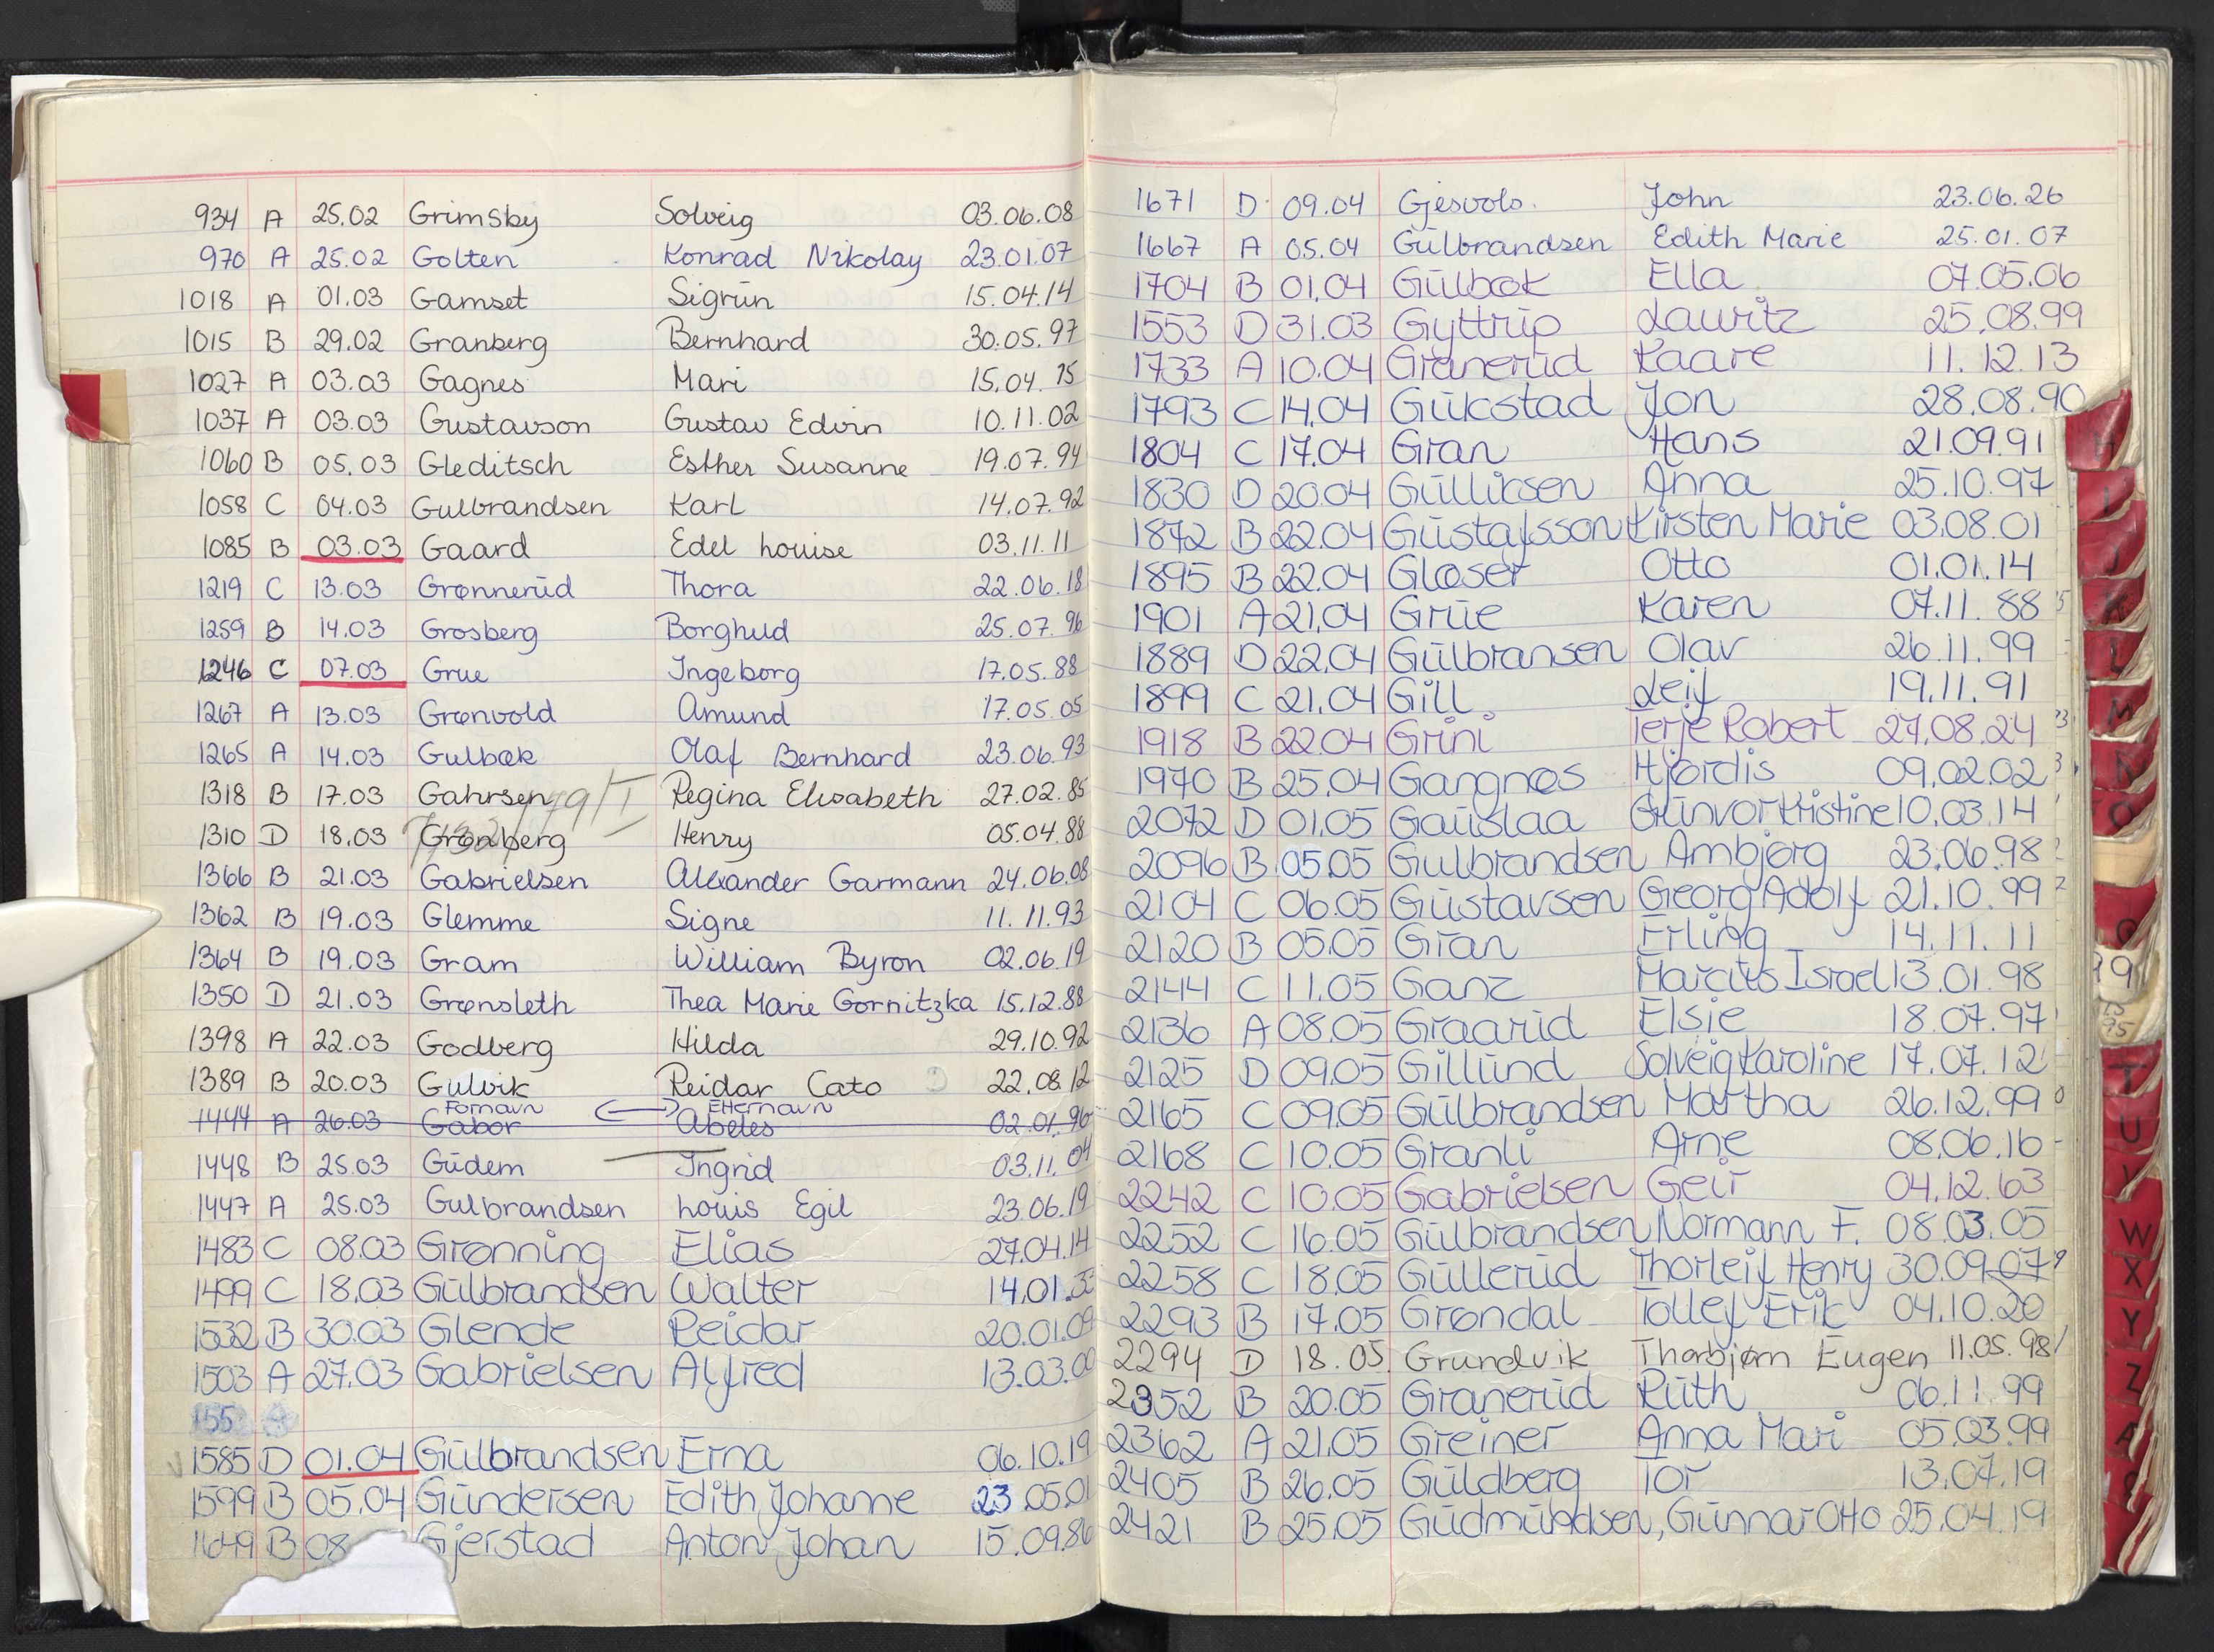 934 A 25.02 Grimsby Solveig 03.06.08
970 A 25.02 Golten Konrad Nikolay 23.01.07
1018 A 01.03 Gamset Sigrun 15.04.14
1015 B 29.02 Granberg Bernhard 30.05.97
1027 A 03.03 Gagnes Mari 15.04.15
1037 A 03.03 Gustavson Gustav Edvin 10.11.02
1060 B 05.03 Gleditsch Esther Susanne 19.07.94
1058 C 04.03 Gulbrandsen Karl 14.07.92
1085 B 03.03 Gaard Edel Louise 03.11.11
1219 C 13.03 Grønnerud Thora 22.06.18
1259 B 14.03 Grosberg Borghild 25.07.96
1246 C 07.03 Grue Ingeborg 17.05.88
1267 A 13.03 Grønvold Amund 17.05.05
1265 A 14.03 Gulbæk Olaf Bernhard 23.06.93
1318 B 17.03 Gahrsen Regina Elisabeth 27.02.85
1310 D 18.03 Grønberg Henry 05.04.88
1366 B 21.03 Gabrielsen Alexander Garmann 24.06.08
1362 B 19.03 Glemme Signe 11.11.93
1364 B 19.03 Gram William Byron 02.06.19
1350 D 21.03 Grønsleth Thea Marie Gornitzka 15.12.88
1398 A 22.03 Godberg Hilda 29.10.92
1389 B 20.03 Gulvik Reidar Cato 22.08.12
Fornavn ↔ Etternavn
1444 A 26.03 Gabor Abeles 02.01.96
1448 B 25.03 Gudem Ingrid 03.11.04
1447 A 25.03 Gulbrandsen Louis Egil 23.06.19
1483 C 08.03 Grønning Elias 27.04.14
1499 C 18.03 Gulbrandsen Walter 14.01.33
1532 B 30.03 Glende Reidar 20.01.09
1503 A 27.03 Gabrielsen Alfred 13.03.00
155 A
1585 D 01.04 Gulbrandsen Erna 06.10.19
1599 B 05.04 Gundersen Edith Johanne 23.05.01
1649 B 08 Gjerstad Anton Johan 15.09.86
1671 D 09.04 Gjesvold John 23.06.26
1667 A 05.04 Gulbrandsen Edith Marie 25.01.07
1704 B 01.04 Gulbæk Ella 07.05.06
1553 D 31.03 Gyttrup Lauritz 25.08.99
1733 A 10.04 Granerud Kaare 11.12.13
1793 C 14.04 Gukstad Jon 28.08.90
1804 C 17.04 Gran Hans 21.09.91
1830 D 20.04 Gulliksen Anna 25.10.97
1872 B 22.04 Gustafsson Kirsten Marie 03.08.01
1895 B 22.04 Glaser Otto 01.01.14
1901 A 21.04 Grue Karen 07.11.88
1889 D 22.04 Gulbransen Olav 26.11.99
1899 C 21.04 Gill Leif 19.11.91
1918 B 22.04 Grini Terje Robert 27.08.24
1970 B 25.04 Gangnæs Hjørdis 09.02.02
2072 D 01.05 Gauslaa Gunvor Kristine 10.03.14
2096 B 05.05 Gulbrandsen Ambjørg 23.06.98
2104 C 06.05 Gustavsen Georg Adolf 21.10.99
2120 B 05.05 Gran Erling 14.11.11
2144 C 11.05 Ganz Marcus Israel 13.01.98
2136 A 08.05 Graarud Elsie 18.07.97
2125 D 09.05 Gillund Solveig Karoline 17.07.12
2165 C 09.05 Gulbrandsen Martha 26.12.99
2168 C 10.05 Granli Arne 08.06.16
2242 C 10.05 Gabrielsen Geir 04.12.63
2252 C 16.05 Gulbrandsen Normann F. 08.03.05
2258 C 18.05 Gullerud Thorleif Henry 30.09.07
2293 B 17.05 Grøndal Tollef Erik 04.10.20
2294 D 18.05 Grundvik Thorbjørn Eugen 11.05.98
2352 B 20.05 Granerud Ruth 06.11.99
2362 A 21.05 Greiner Anna Mari 05.03.99
2405 B 26.05 Guldberg Tor 13.07.19
2421 B 25.05 Gudmundsen, Gunnar Otto 25.04.19
L
M
N
O
T
U
V
W
X
Y
Z